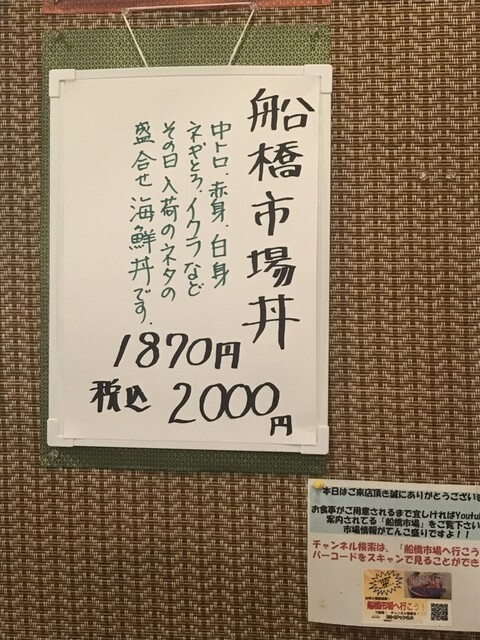 船橋市場丼
中トロ.赤身.白身
ネギとろ.イクラなど
その日入荷のネタの
盛合せ海鮮丼です.
1870円
税込 2000円
本日はご来店頂き誠にありがとうございま
お食事がご用意されるまで宜しければYoutub
案内されてる「船橋市場」をご覧下さい
市場情報がてんこ盛りですよ！！
チャンネル検索は、「船橋市場へ行こう
バーコードをスキャンで見ることができ
船橋市場へ行こう!